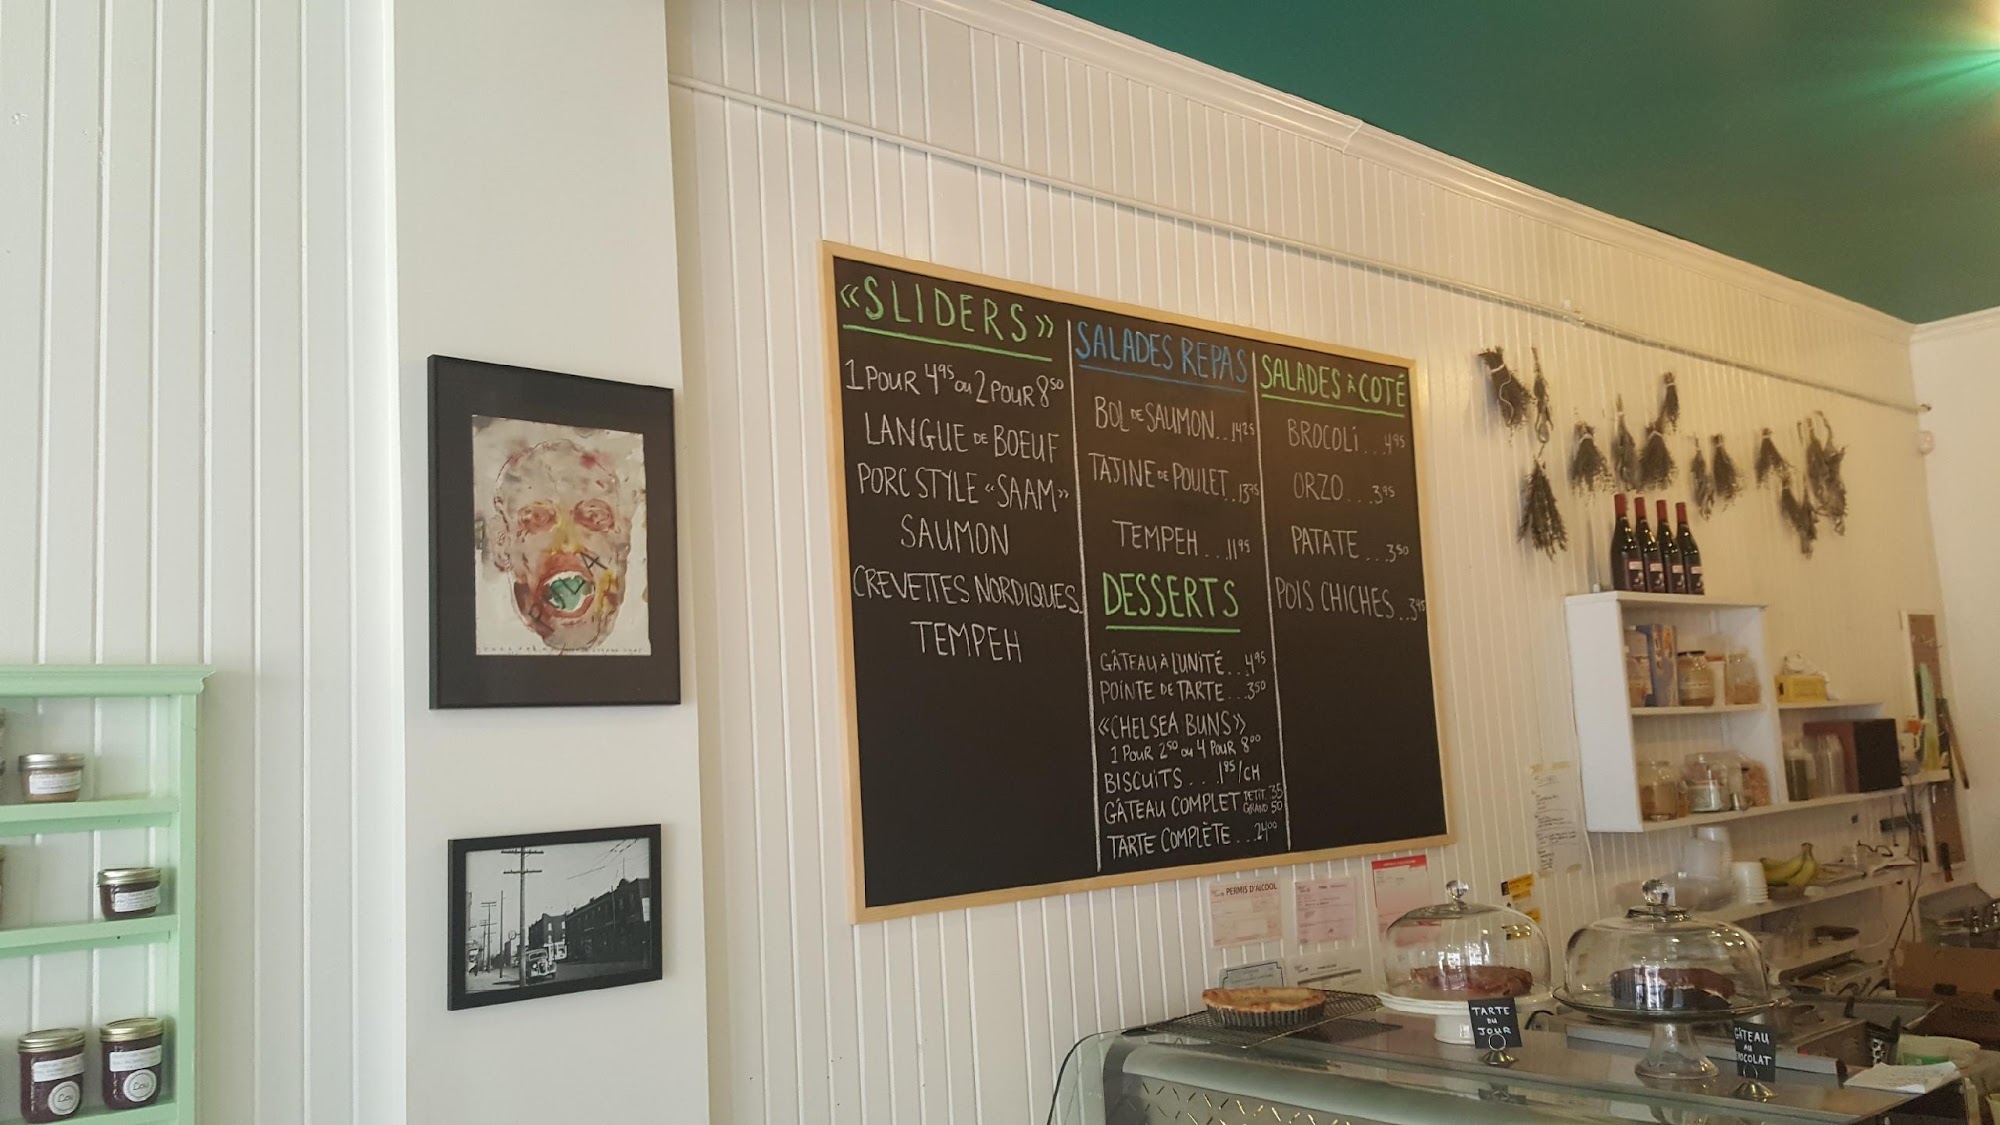 «SLIDERS»
1 POUR 4.95 OU 2 POUR 8.50
LANGUE DE BOEUF
PORC STYLE «SAAM»
SAUMON
CREVETTES NORDIQUES
TEMPEH
SALADES REPAS
BOL DE SAUMON...14.25
TAJINE DE POULET...13.75
TEMPEH...11.95
DESSERTS
GÂTEAU À L'UNITÉ...4.95
POINTE DE TARTE...3.50
«CHELSEA BUNS»
1 POUR 2.50 OU 4 POUR 8.00
BISCUITS...1.85/CH
GÂTEAU COMPLET PETIT.35
GRAND 50
TARTE COMPLÈTE...24.00
SALADES À COTÉ
BROCOLI...4.95
ORZO...3.95
PATATE...3.50
POIS CHICHES...3.95
PERMIS D'ALCOOL
TARTE
DU
JOUR
GÂTEAU
AU
CHOCOLAT
Lou